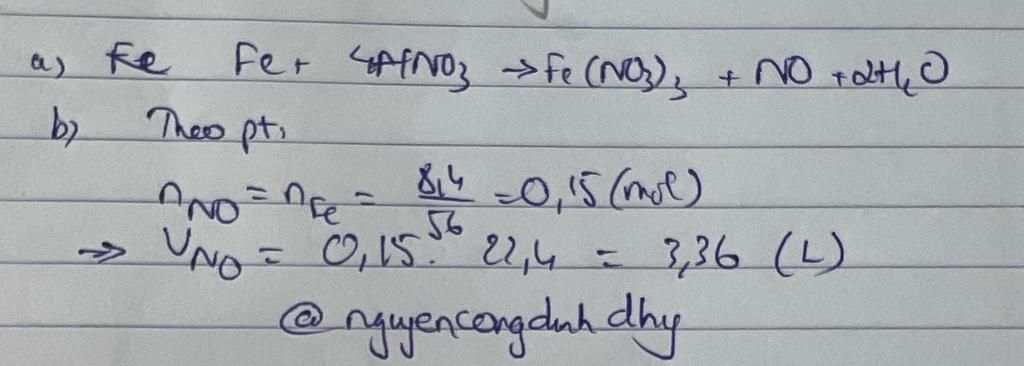 a) Fe Fe + 4HNO3 → Fe(NO3)3 + NO + 2H2O
b) Theo pt:
nNO = nFe = 8,4/56 = 0,15 (mol)
⇒ VNO = 0,15. 22,4 = 3,36 (L)
@nguyencongdinh dhy